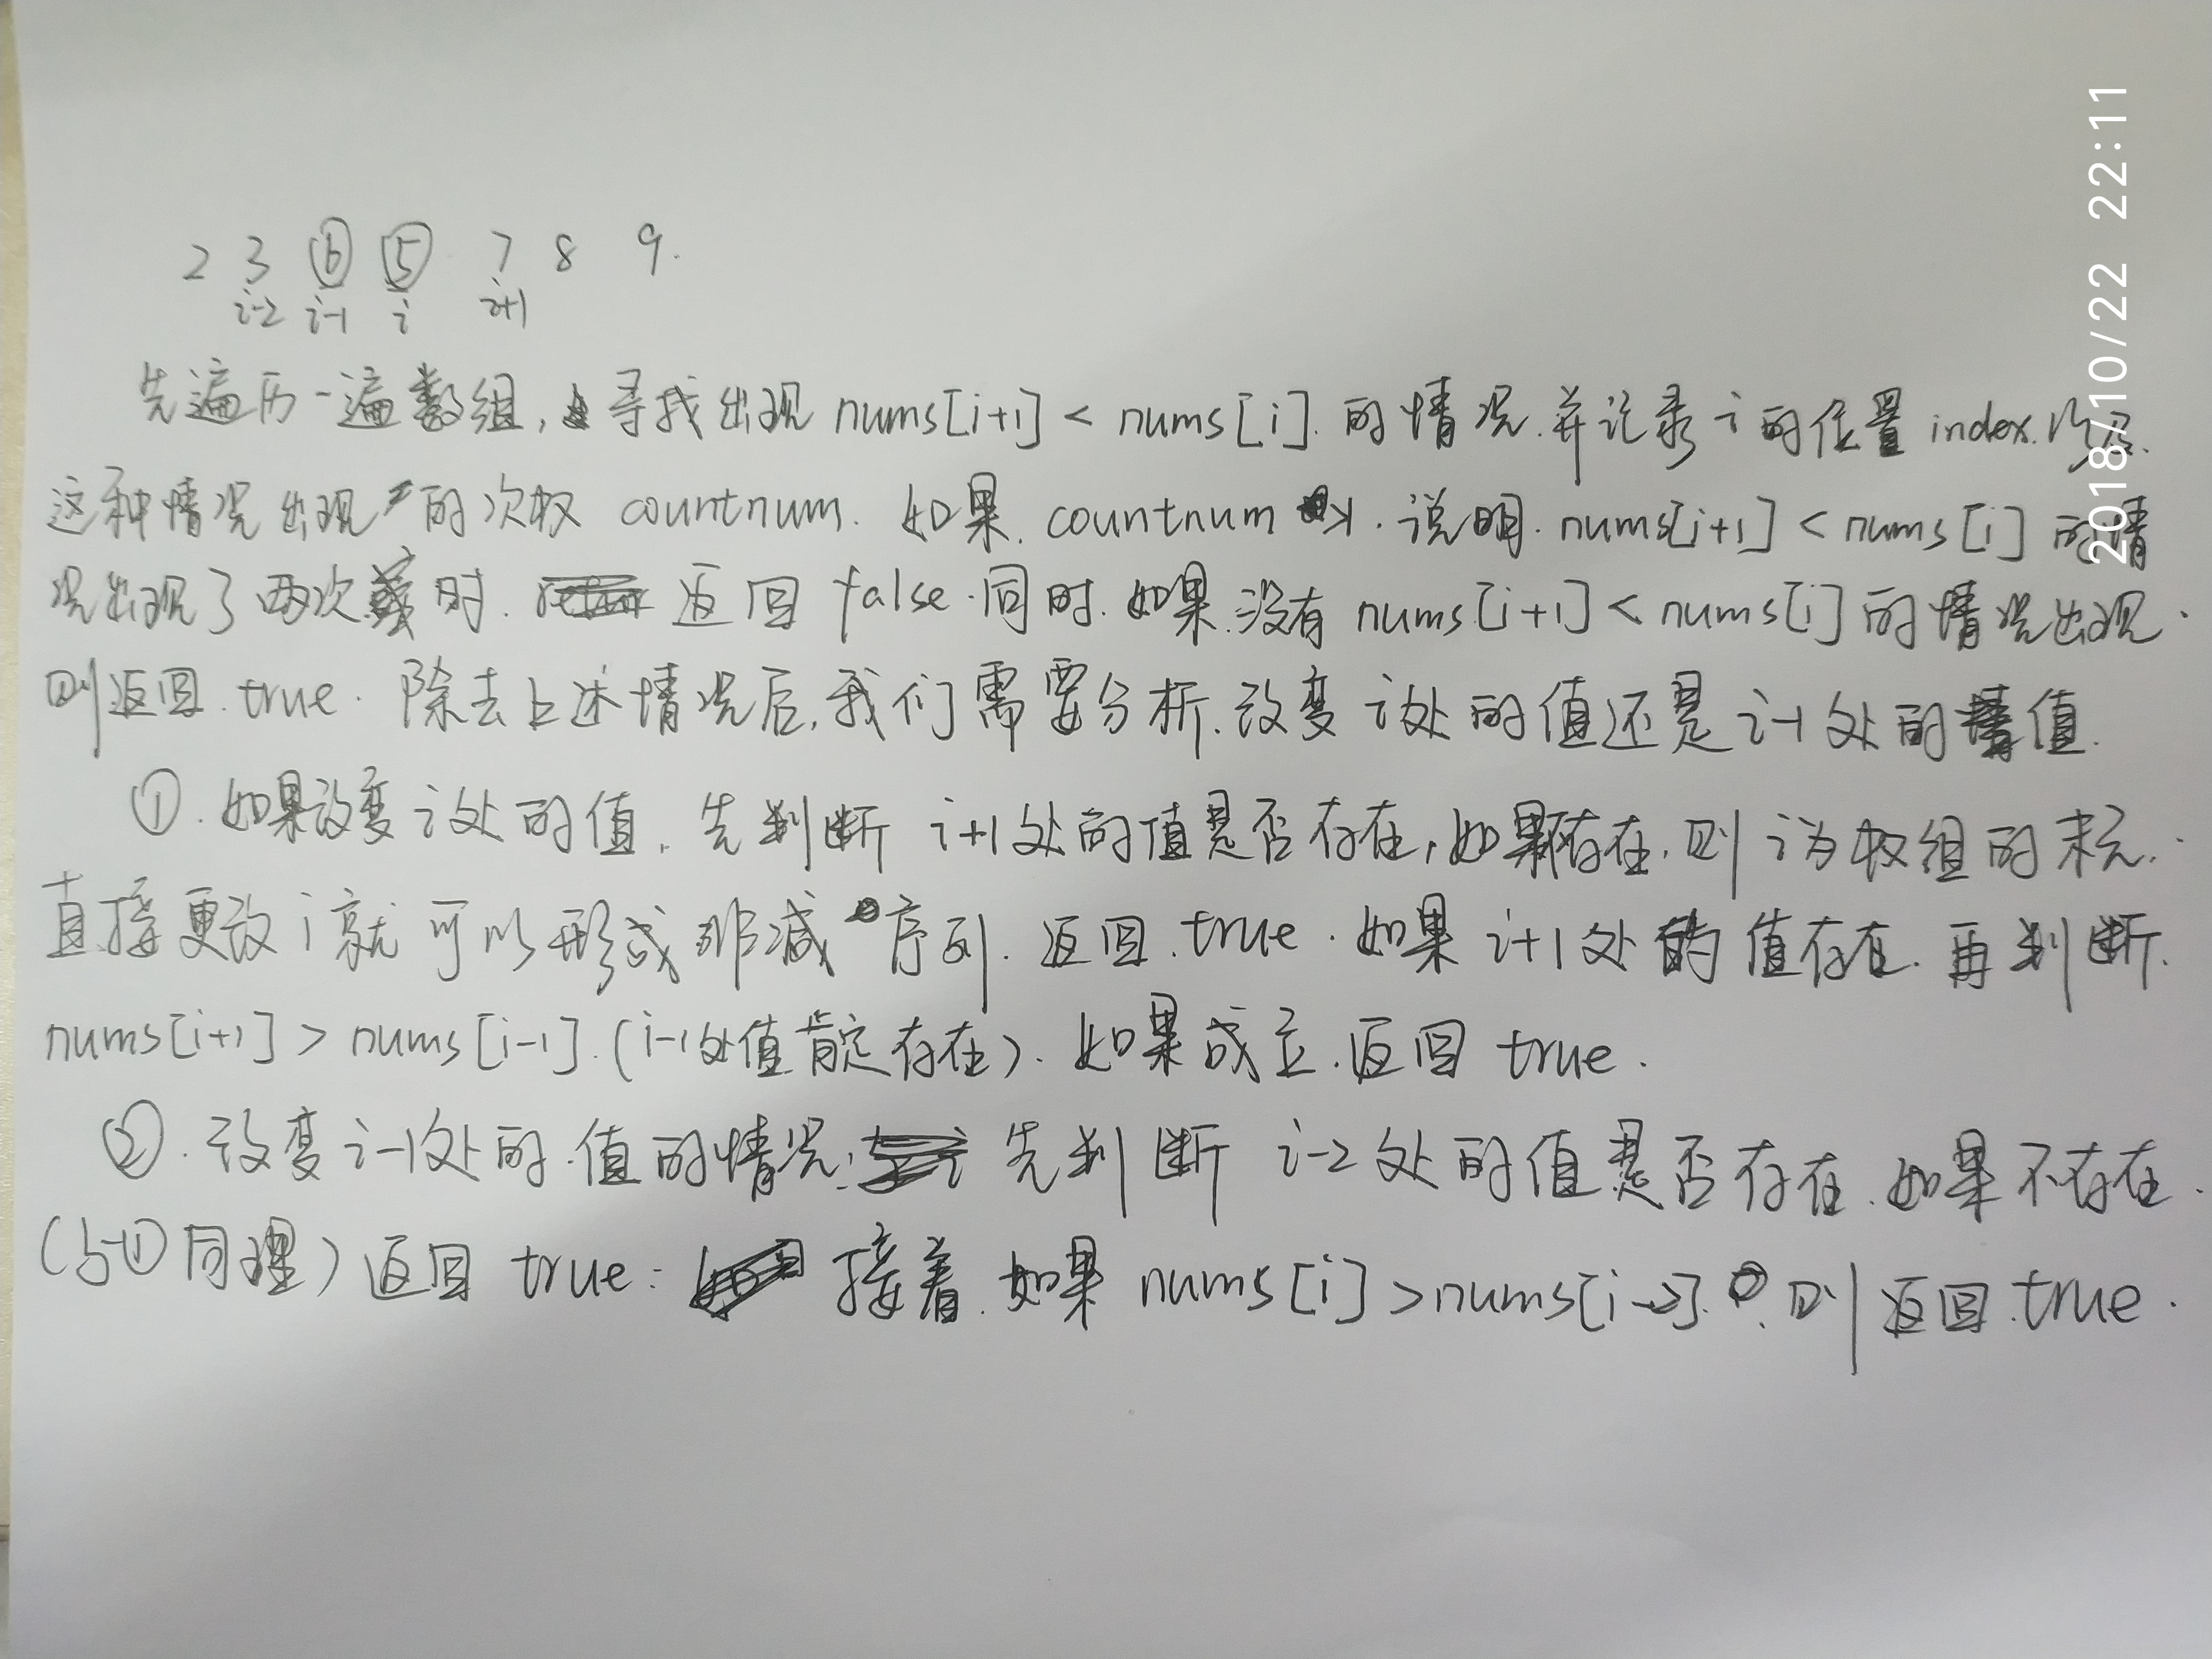 2 3 ⑥ ⑤ 7 8 9.
i-2 i-1 i i+1
先遍历一遍数组,寻找出现 nums[i+1] < nums[i].的情况.并记录i的位置index.以及.
这种情况出现的次数 countnum. 如果. countnum 说明. nums[i+1] < nums[i] 的情
况出现了两次 时. 返回 false.同时.如果.没有 nums[i+1] < nums[i]的情况出现.
则返回.true. 除去上述情况后.我们需要分析.改变i处的值还是i-1处的值.
①.如果改变i处的值.先判断 i+1处的值是否存在,如果 存在.则i为数组的末尾.
直接更改i就可以形成非减序列.返回.true.如果i+1处的值存在.再判断.
nums[i+1] > nums[i-1].(i-1处值 存在).如果成立.返回 true.
②.改变i-1处的.值的情况.先判断 i-2处的值是否存在.如果不存在.
(与①同理)返回 true. 接着.如果 nums[i] > nums[i-2].则返回.true.
2018/10/22 22:11